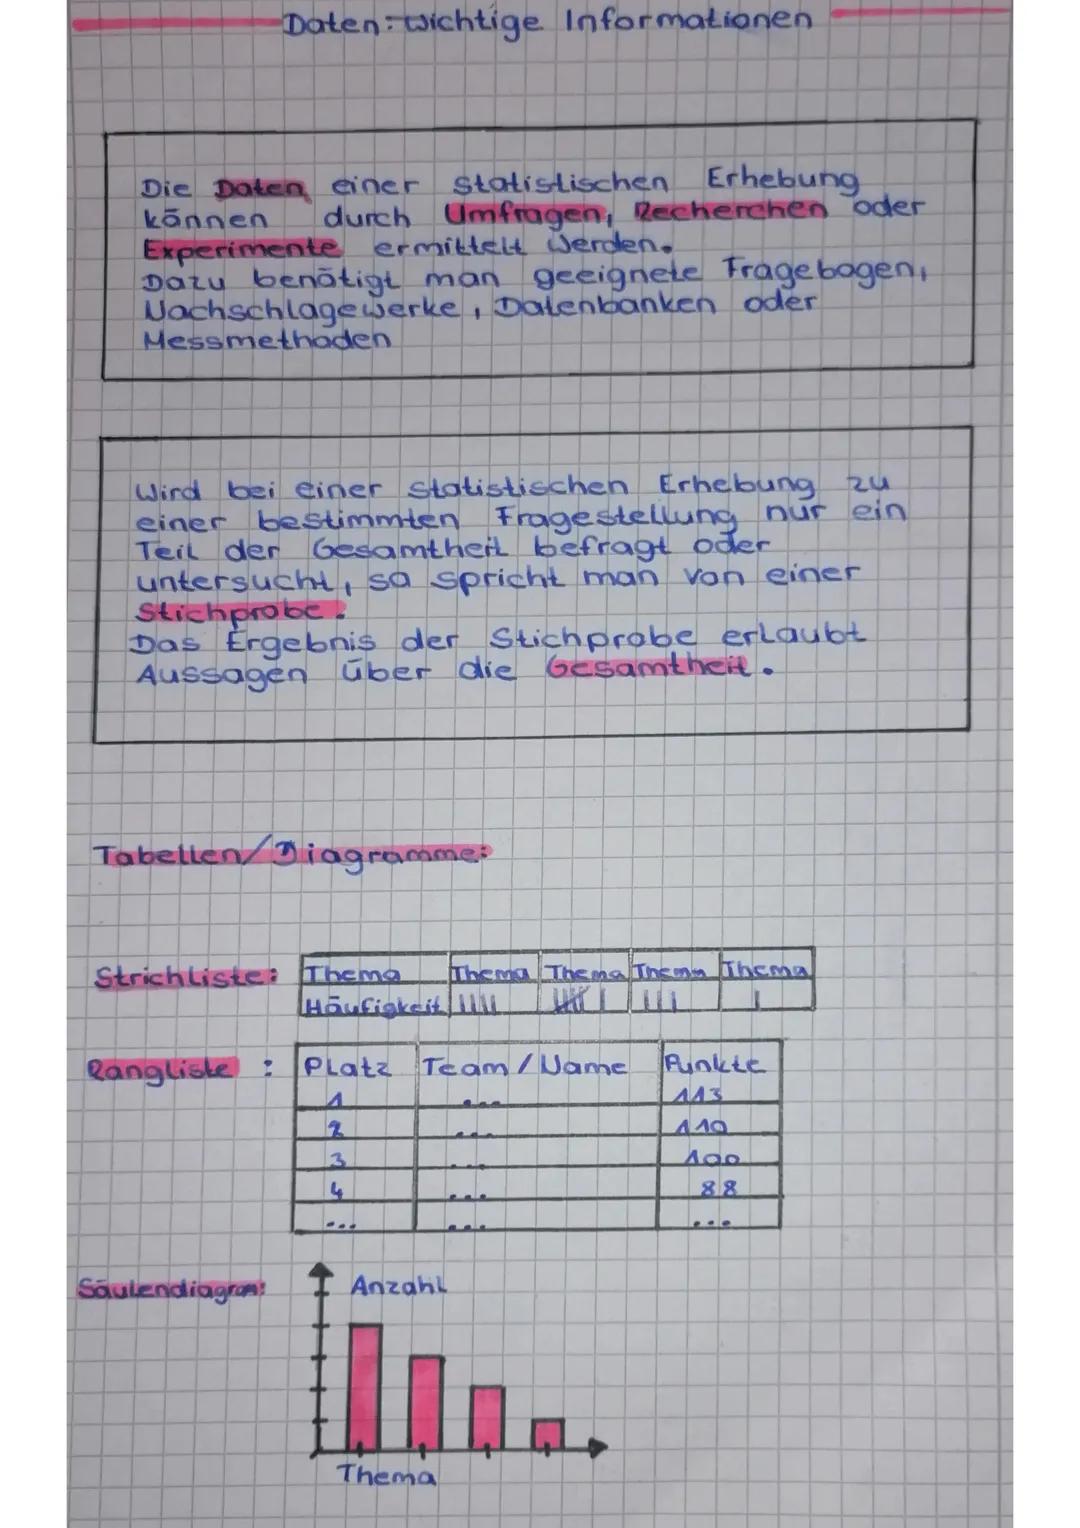 Daten: wichtige Informationen
Die Daten einer statistischen Erhebung
können durch Umfragen, Recherchen oder
Experimente ermittelt werden.
Dazu benötigt man geeignete Fragebogen,
Nachschlagewerke, Datenbanken oder
Messmethoden
Wird bei einer statistischen Erhebung zu
einer bestimmten Fragestellung nur ein
Teil der Gesamtheit befragt oder
untersucht, so spricht man von einer
Stichprobe.
Das Ergebnis der Stichprobe erlaubt
Aussagen über die Gesamtheit.
Tabellen/Diagramme:
Strichliste: Thema Thema Thema Thema Thema
Häufigkeit |||| |||| | ||| |
Rangliste : Platz Team/Name Punkte
1 ... 113
2 ... 110
3 ... 100
4 ... 88
... ... ...
Säulendiagram: Anzahl
Thema